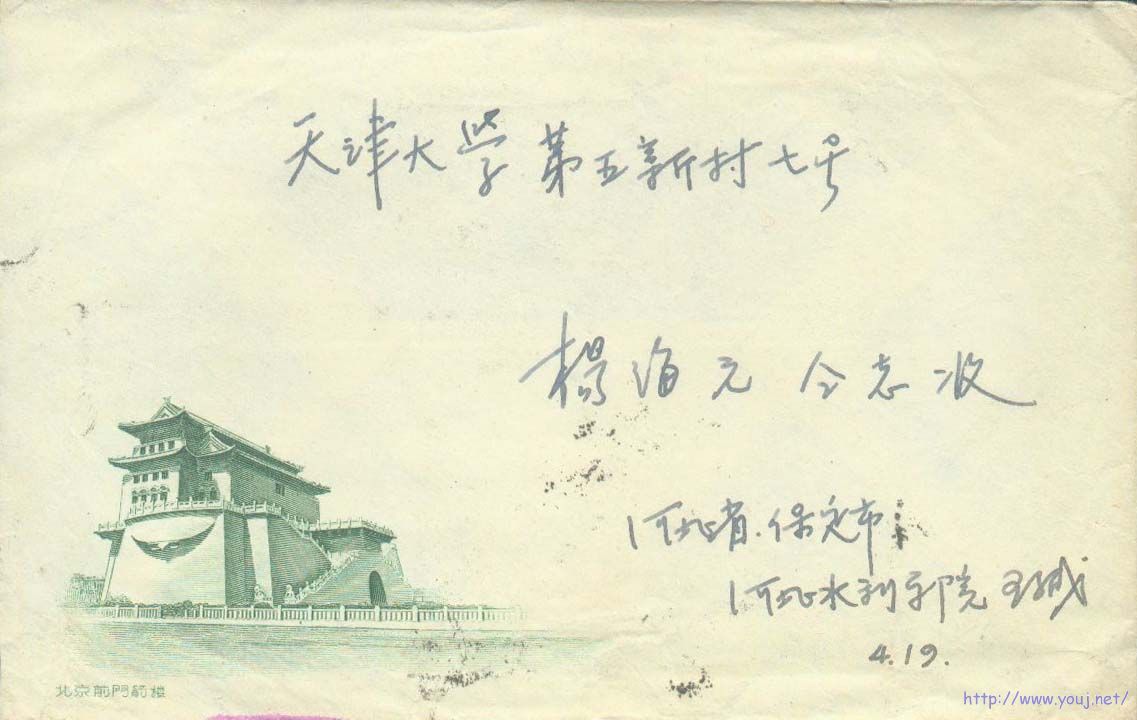 天津大学第五新村七号
杨海元仝志收
河北省.保定市
河北水利学院 王城
4.19.
北京前門箭樓
http://www.youj.net/